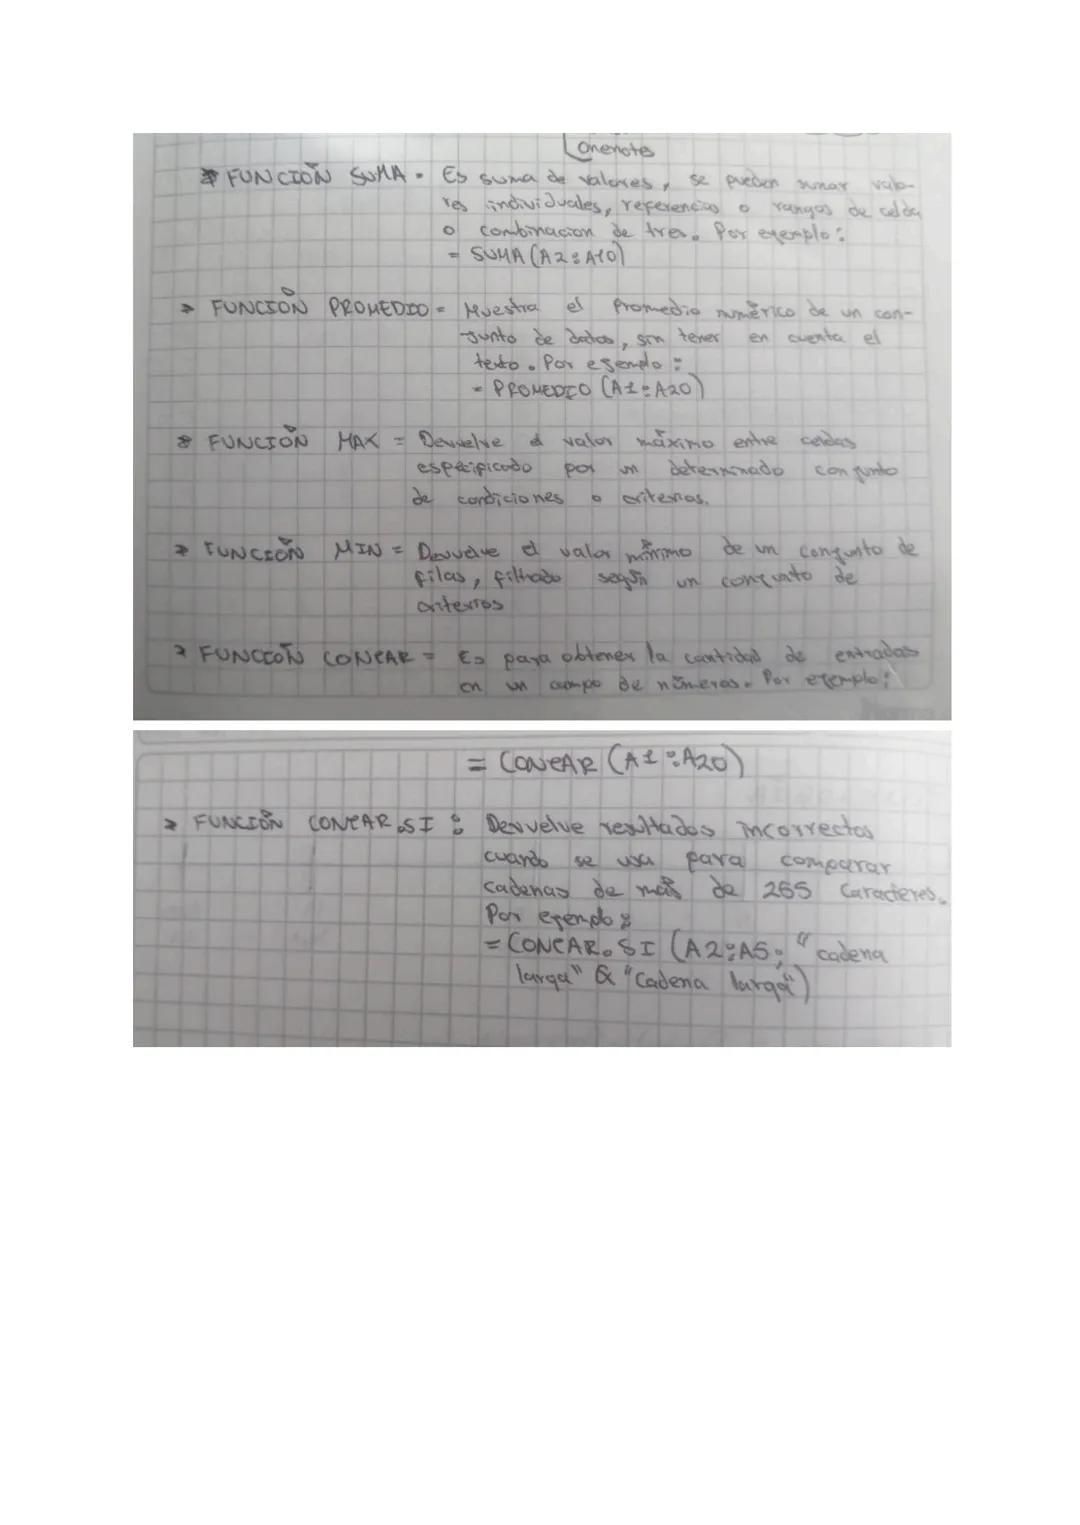 onenotes
* FUNCIÓN SUMA = Es suma de valores, se pueden sumar valo-
res individuales, referencias o rangos de celda
o combinacion de tres. Por ejemplo:
= SUMA (A2:A10)
> FUNCIÓN PROMEDIO = Muestra el Promedio numérico de un con-
junto de datos, sin tener en cuenta el
texto. Por ejemplo:
= PROMEDIO (A1:A20)
* FUNCIÓN MAX = Devuelve el valor máximo entre celdas
especificado por un determinado conjunto
de condiciones o criterios.
> FUNCIÓN MIN = Devuelve el valor mínimo de un conjunto de
filas, filtrado según un conjunto de
criterios
> FUNCIÓN CONTAR = Es para obtener la cantidad de entradas
en un campo de números. Por ejemplo:
Norma
= CONTAR (A1:A20)
> FUNCIÓN CONTAR.SI : Devuelve resultados incorrectos
cuando se usa para comparar
cadenas de más de 255 caracteres.
Por ejemplo:
= CONTAR.SI (A2:A5; "cadena
larga" & "Cadena larga")